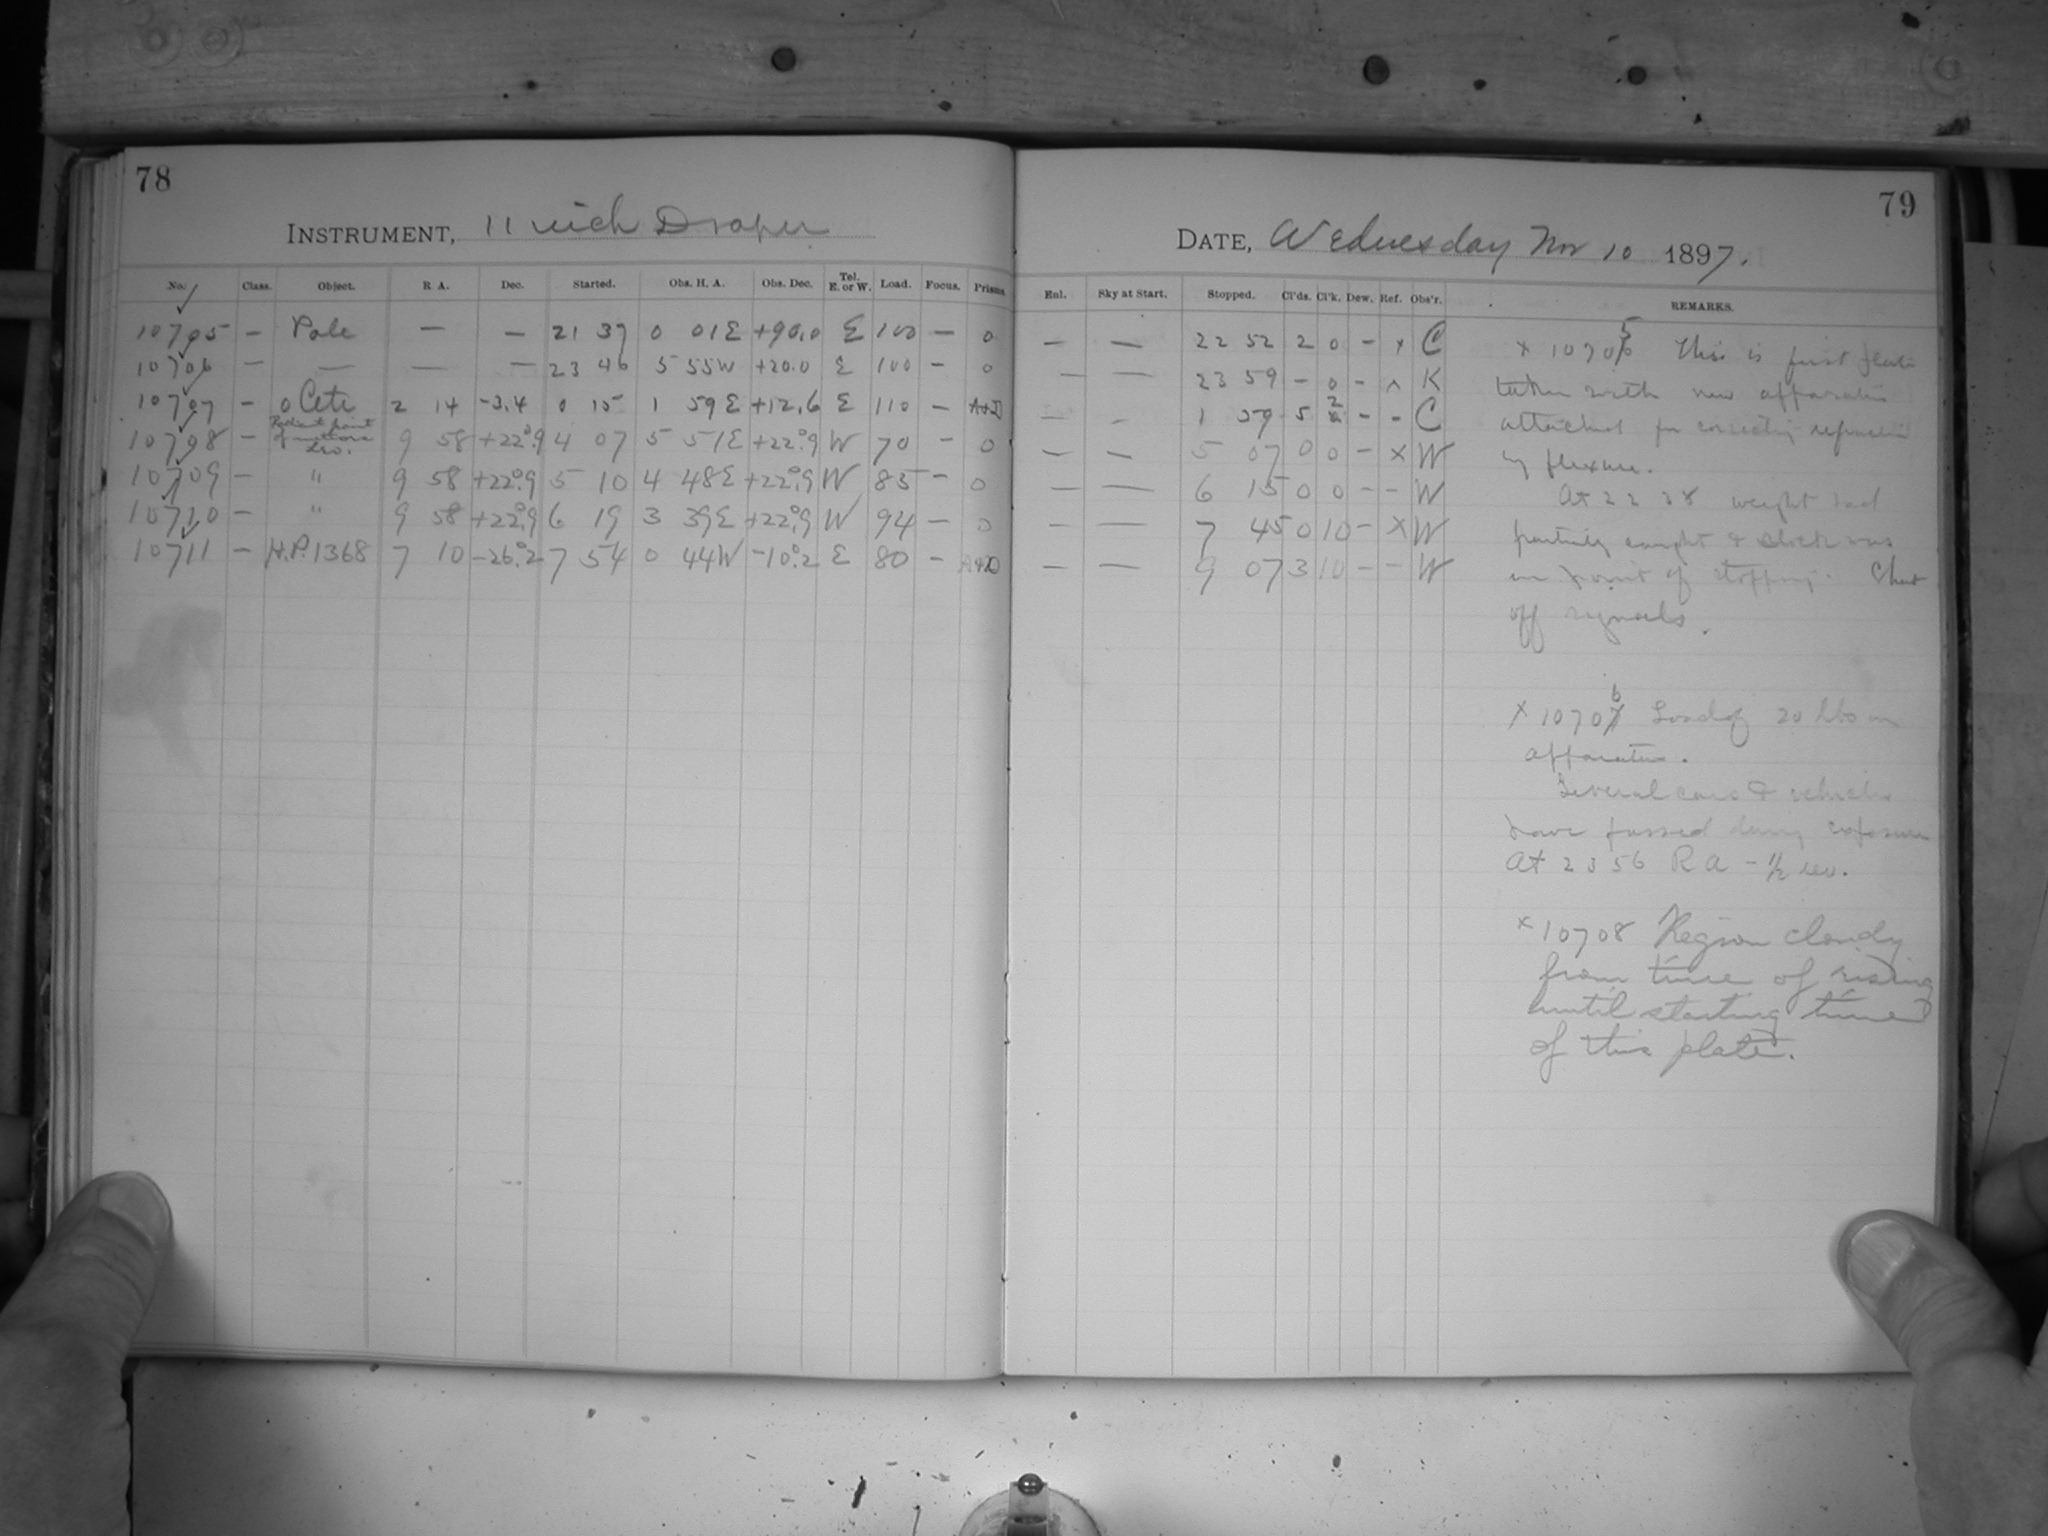 78
INSTRUMENT, 11 inch Draper
No. Class. Object. R A. Dec. Started. Obs. H. A. Obs. Dec. Tel. E. or W. Load. Focus. Prisms.
10705 — Pole — — 21 37 0 01E +90.0 E 100 — 0
10706 — — — — 23 46 5 55W +20.0 E 100 — 0
10707 — o Ceti 2 14 -3.4 0 15 1 59E +12.6 E 110 —
10708 — Radiant point of meteors Leo. 9 58 +22°.9 4 07 5 51E +22°.9 W 70 — 0
10709 — " 9 58 +22°.9 5 10 4 48E +22°.9 W 85 — 0
10710 — " 9 58 +22°.9 6 19 3 39E +22°.9 W 94 — 0
10711 — H.P. 1368 7 10 -26°.2 7 54 0 44W -10°.2 E 80 —
79
DATE, Wednesday Nov 10 1897.
Enl. Sky at Start. Stopped. Cl'ds. Cl'k. Dew. Ref. Obs'r. REMARKS.
— — 22 52 2 0 - x C
— — 23 59 - 0 - x K
— - 1 59 5 2 - - C
— — 5 07 0 0 - x W
— — 6 15 0 0 - - W
— — 7 45 0 10 - x W
— — 9 07 3 10 - - W
x 10705 This is first plate
taken with new apparatus
attached for correcting refraction
by flexure.
At 22 28 weight had
partially caught & clock was
on point of stopping. Shut
off signals.
x 10706 Load of 20 lbs on
apparatus.
Several cars & vehicles
have passed during exposure
At 23 56 R A - 1/2 rev.
x 10708 Region cloudy
from time of rising
until starting time
of this plate.